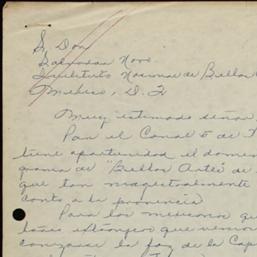 Sr. Don
Salvador Novo
Instituto Nacional de Bellas
Mexico, D. F.
Muy estimado señor
Por el Canal 5 de T
tiene oportunidad el domin
grama de "Bellas Artes" de
que tan magistralmente
a la provincia
Para los mexicanos qu
que venimos
la faz de la Cap